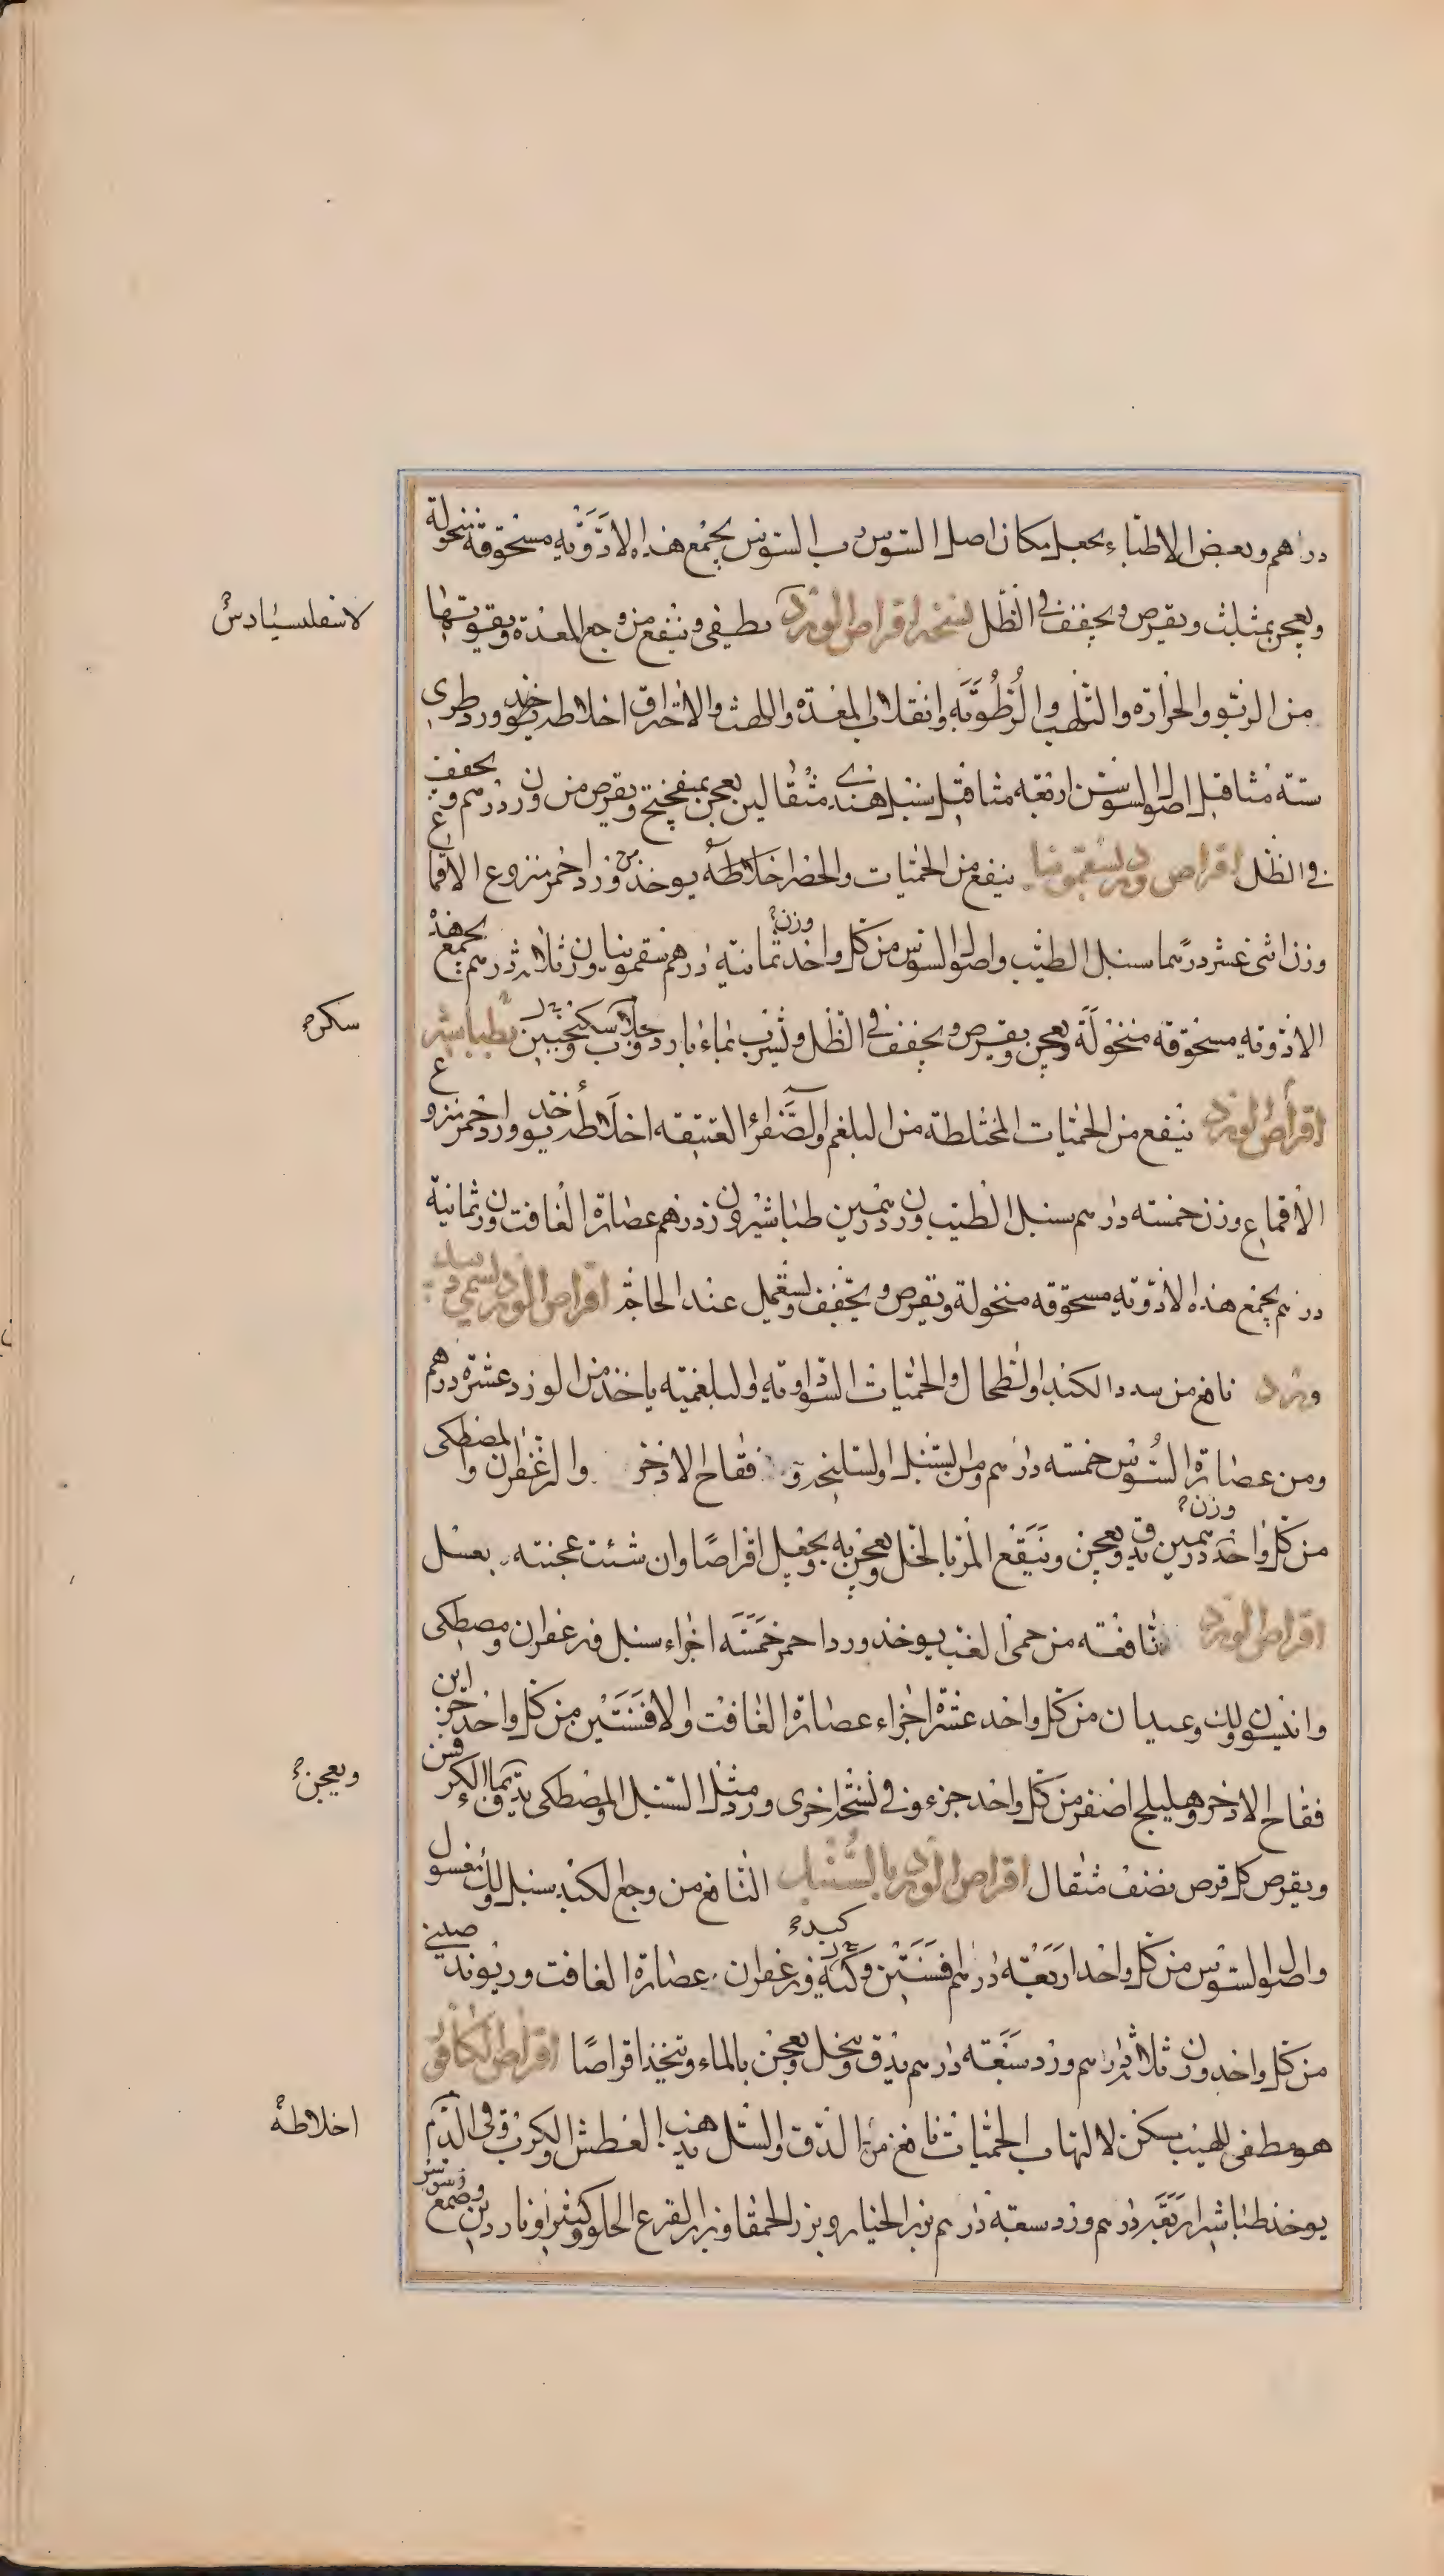 دراهم وبعض الاطباء يجعل مكان اصل السوس رب السوس يجمع هذه الادوية مسحوقة منخولة
ويعجن بمثلث ويقرص ويجفف في الظل نسخة اقراص الورد يطفي وينفع من وجع المعدة ويقويها
لاسفلسيادس
من الربو والحرارة والتلهب والرطوبة وانقلاب المعدة واللهث والاحتراق اخلاطه يوخذ ورد طري
ستة مثاقيل اصل السوسن اربعة مثاقيل سنبل هندي مثقالين يعجن بميفختج ويقرص من وزن درهم ويجفف
في الظل اقراص ورد بسقمونيا ينفع من الحميات والحضر اخلاطه يوخذ من ورد احمر منزوع الاقماع
وزن اثني عشر درهما سنبل الطيب واصل السوس من كل واحد وزن ثمانية درهم سقمونيا وزن ثلاثة درهم يجمع هذه
الادوية مسحوقة منخولة ويعجن ويقرص ويجفف في الظل ويشرب بماء بارد وجلاب وسكنجبين بطباشير
سكر
اقراص الورد ينفع من الحميات المختلطة من البلغم والصفراء العتيقة اخلاطه يوخذ ورد احمر منزوع
الاقماع وزن خمسة درهم سنبل الطيب وزن درهمين طباشير وزن درهم عصارة الغافت وزن ثمانية
درهم يجمع هذه الادوية مسحوقة منخولة ويقرص ويجفف ويستعمل عند الحاجة اقراص الورد يسمى
ورد نافع من سدد الكبد والطحال والحميات السوداوية والبلغمية ياخذ من الورد عشرة درهم
ومن عصارة السوس خمسة درهم ومن السنبل والسليخة و فقاح الاذخر والزعفران والمصطكى
من كل واحد وزن درهمين يدق ويعجن وينقع المر بالخل ويعجن به ويجعل اقراصا وان شئت عجنته بعسل
اقراص الورد نافعة من حمى الغب يوخذ ورد احمر خمسة اجزاء سنبل وزعفران ومصطكى
وانيسون ولك وعيدان من كل واحد عشرة اجزاء عصارة الغافت والافسنتين من كل واحد جزاين
فقاح الاذخر وهليلج اصفر من كل واحد جزء وفي نسخة اخرى ورد مثل السنبل والمصطكى يدق بماء الكرفس
ويعجن
ويقرص كل قرص نصف مثقال اقراص الورد بالسنبل النافع من وجع الكبد سنبل ولك مغسول
واصل السوس من كل واحد اربعة درهم افسنتين وكبة وزعفران عصارة الغافت وريوند صيني
كبد
من كل واحد وزن ثلاثة دراهم ورد سبعة درهم يدق وينخل ويعجن بالماء ويتخذ اقراصا اقراص الكافور
هو مطفى للهيب مسكن لالتهاب الحميات نافع من الدق والسل يذهب العطش والكرب وقي الدم
اخلاطه
يوخذ طباشير اربعة درهم ورد سبعة درهم بزر الخيار وبزر الحمقا وبزر القرع الحلو وكثيرا وناردين وصمغ